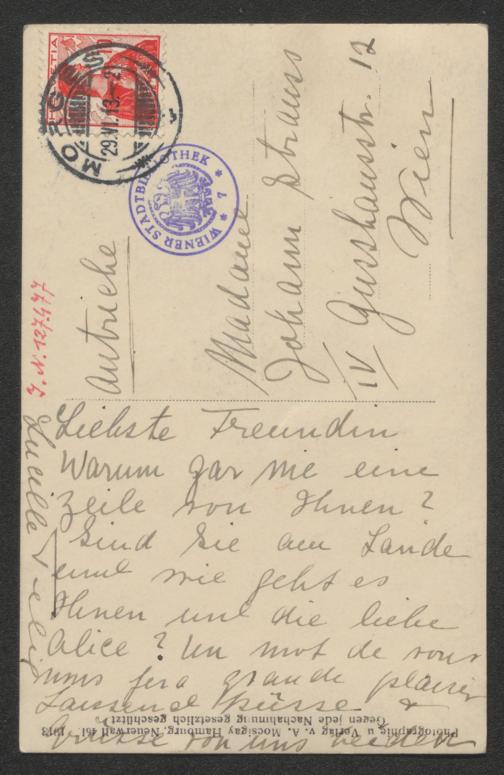 HELVETIA
10
MORGES
29.VI.13.-2
WIENER STADTBIBLIOTHEK
* 7 *
Autriche
Madame
Johann Strauss
IV Gusshausstr. 12
Wien
J. N. 127.477
Liebste Freundin
Warum gar nie eine
Zeile von Ihnen?
Sind Sie am Lande
und wie geht es
Ihnen und die liebe
Alice? Un mot de vous
nous fera grande plaisir
Tausend Küsse &
Grüsse von uns beiden
Lucille
Photographie u. Verlag v. A. Mocsigay Hamburg, Neuerwall 46I 1913
Gegen jede Nachahmung gesetzlich geschützt!